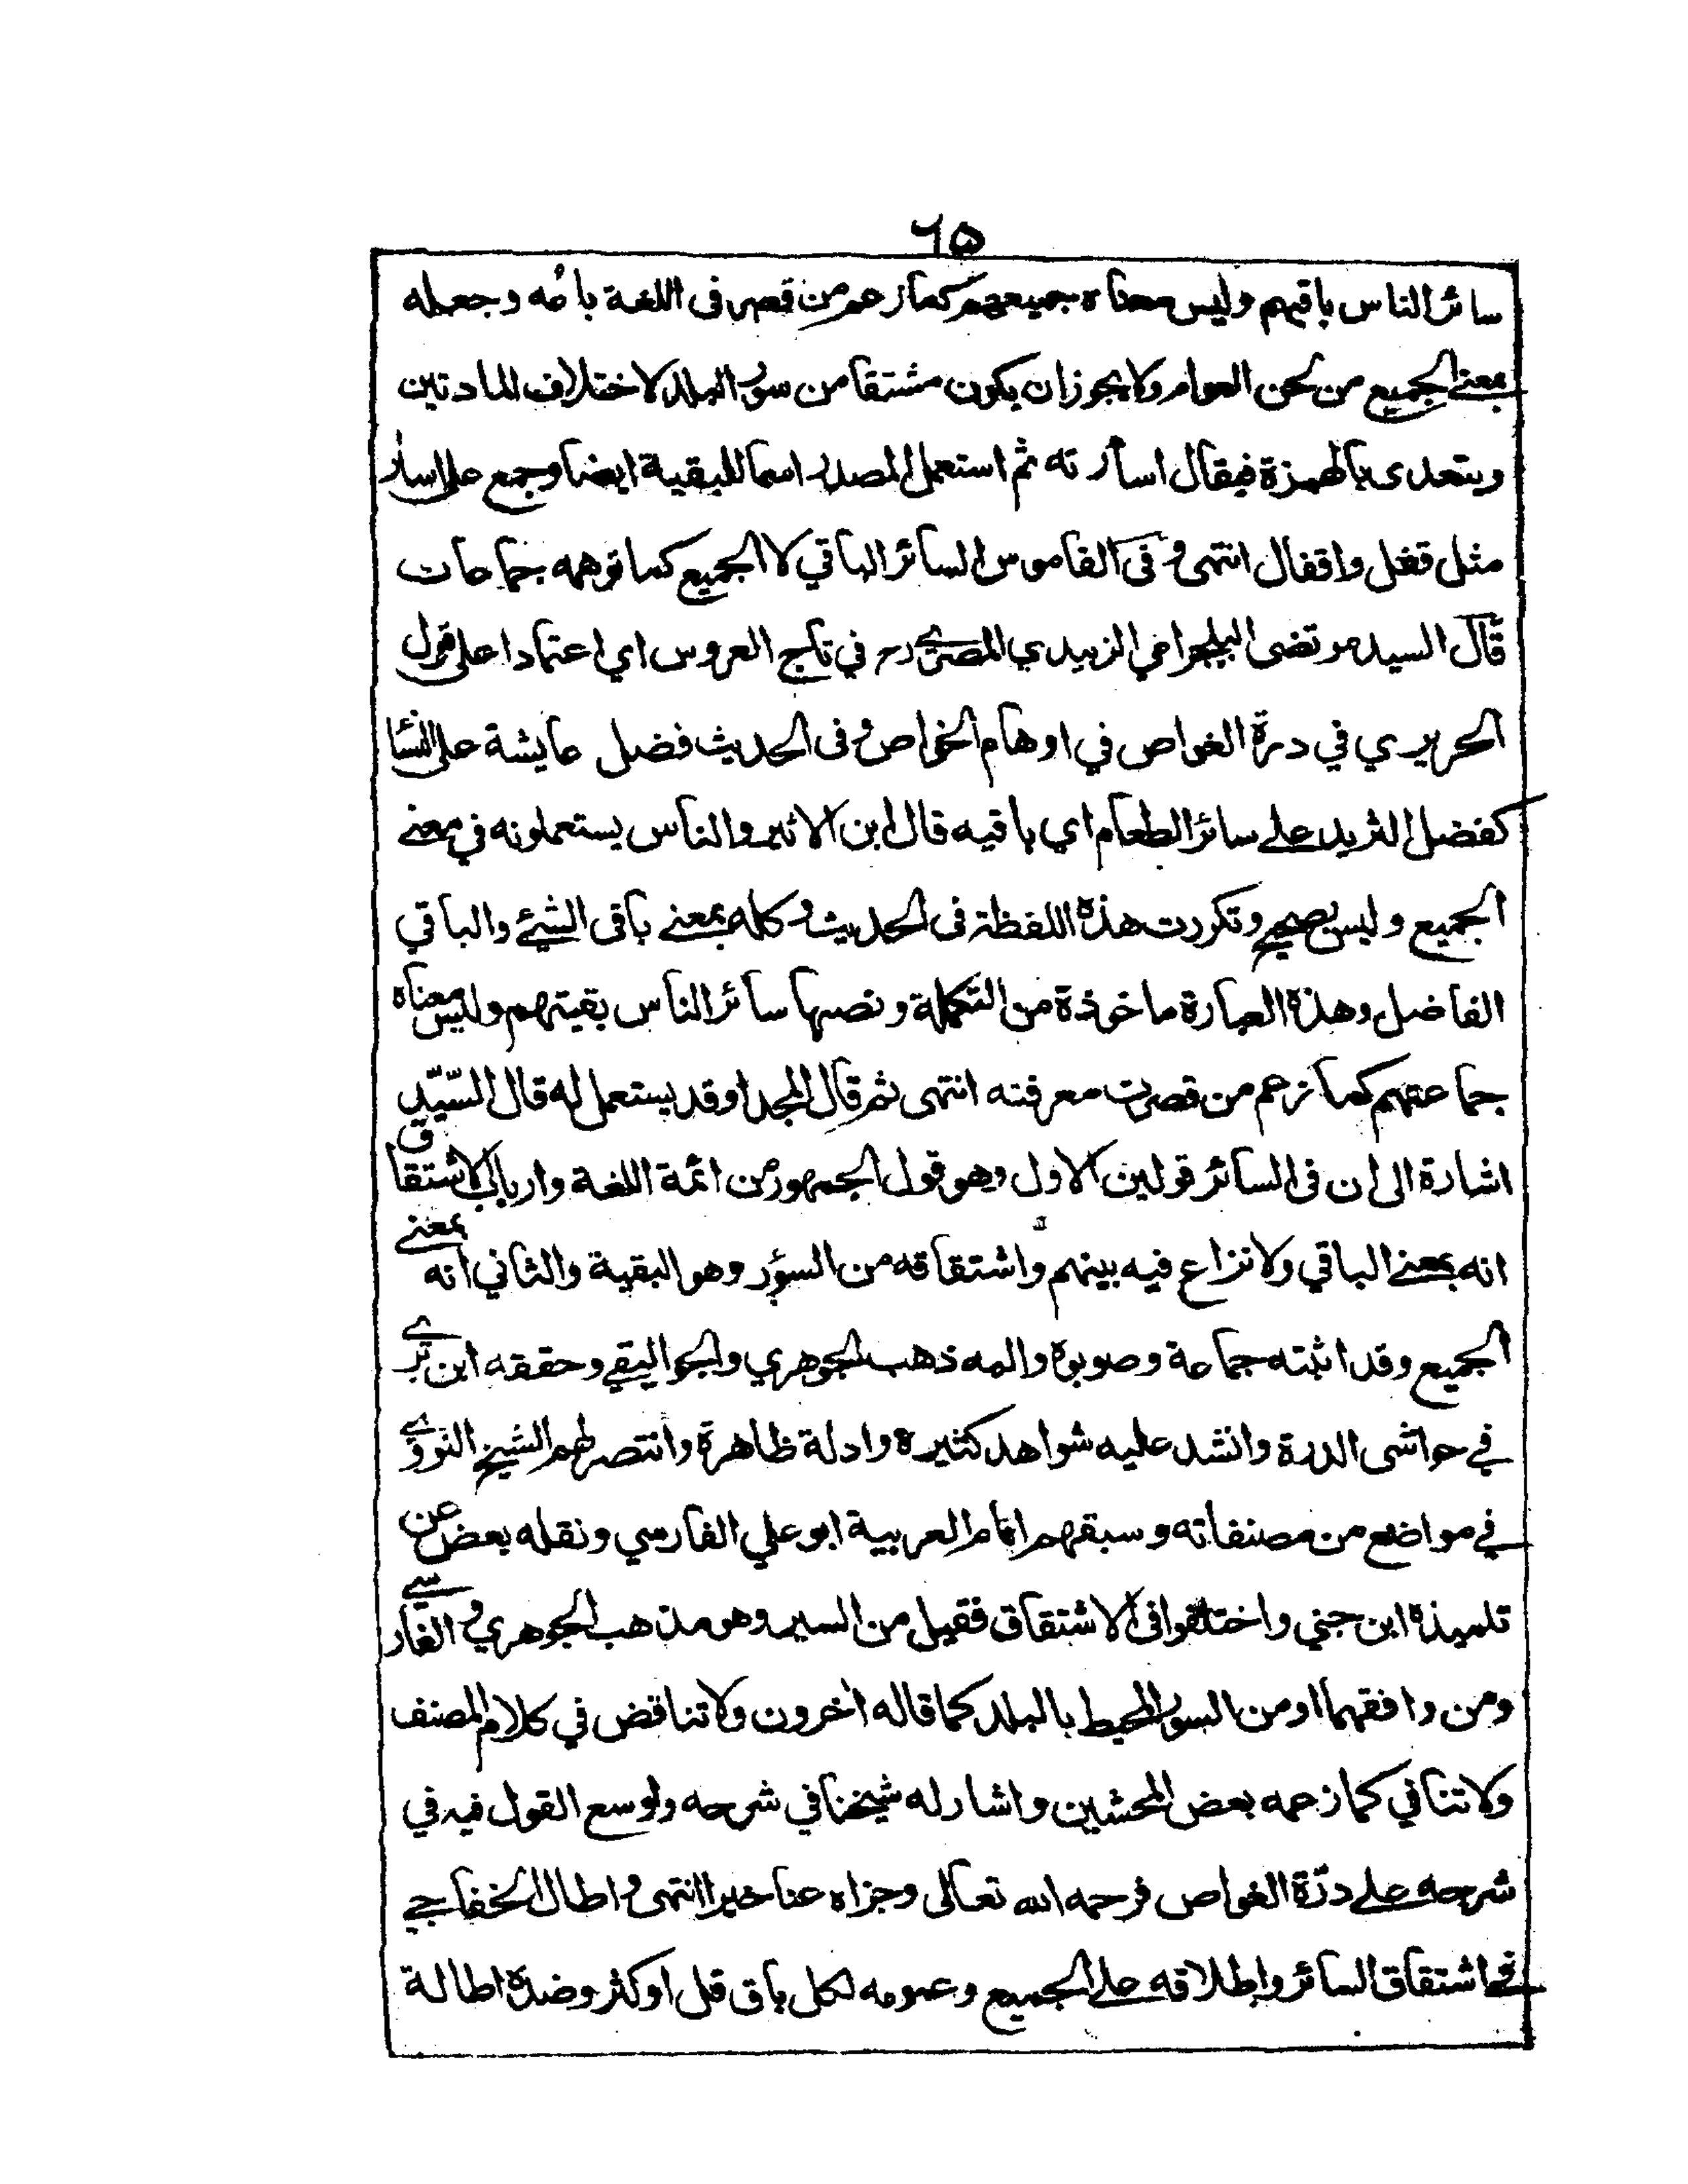 ٦٥
سائر الناس باقيهم وليس معناه جميعهم كما زعم من قصر فى اللغة باعه وجعله
بمعنے الجميع من لحن العوام ولا يجوز ان يكون مشتقا من سور البلد لاختلاف المادتين
ويتعدى بالهمزة فيقال اسأرته ثم استعمل المصدر اسما للبقية ايضا وجمع علے اسار
مثل قفل واقفال انتهى وفى القاموس السائر الباقي لا الجميع كما توهمه جماعات
قال السيد مرتضى البلجرامي الزبيدي المصرى رح في تاج العروس اي اعتمادا على قول
الحريري في درة الغواص في اوهام الخواص وفى الحديث فضل عايشة على النسا
كفضل الثريد علے سائر الطعام اي باقيه قال ابن الاثير والناس يستعملونه في معنے
الجميع وليس بصحيح وتكررت هذه اللفظة فى الحديث وكله بمعنے باقى الشيئے والباقي
الفاضل وهذه العبارة ماخوذة من التكملة ونصها سائر الناس بقيتهم وليس معناه
جماعتهم كما زعم من قصرت معرفته انتهى ثم قال المجد او قد يستعمل له قال السّيّد
اشارة الى ان فى السائر قولين الاول وهو قول الجمهور من ائمة اللغة وارباب الاشتقاق
انه بمعنے الباقي ولا نزاع فيه بينهم واشتقاقه من السؤر وهو البقية والثاني انه بمعنے
الجميع وقد اثبته جماعة وصوبوه واليه ذهب الجوهري والجواليقي وحققه ابن برے
في حواشى الدرة وانشد عليه شواهد كثيرة وادلة ظاهرة وانتصر لهم الشيخ النووے
في مواضع من مصنفاته وسبقهم امام العربية ابو علي الفارسي ونقله بعض عن
تلميذه ابن جني واختلفوا فى الاشتقاق فقيل من السير وهو مذهب الجوهري والفارسے
ومن وافقهما او من السور المحيط بالبلد كما قاله اخرون ولا تناقض في كلام المصنف
ولا تنافي كما زعمه بعض المحشين واشار له شيخنا في شرحه واوسع القول فيه في
شرحه علے درّة الغواص فرحمه الله تعالى وجزاه عنا خيرا انتهى واطال الخفاجے
في اشتقاق السائر واطلاقه علے الجميع وعمومه لكل باق قل او كثر وضده اطالة